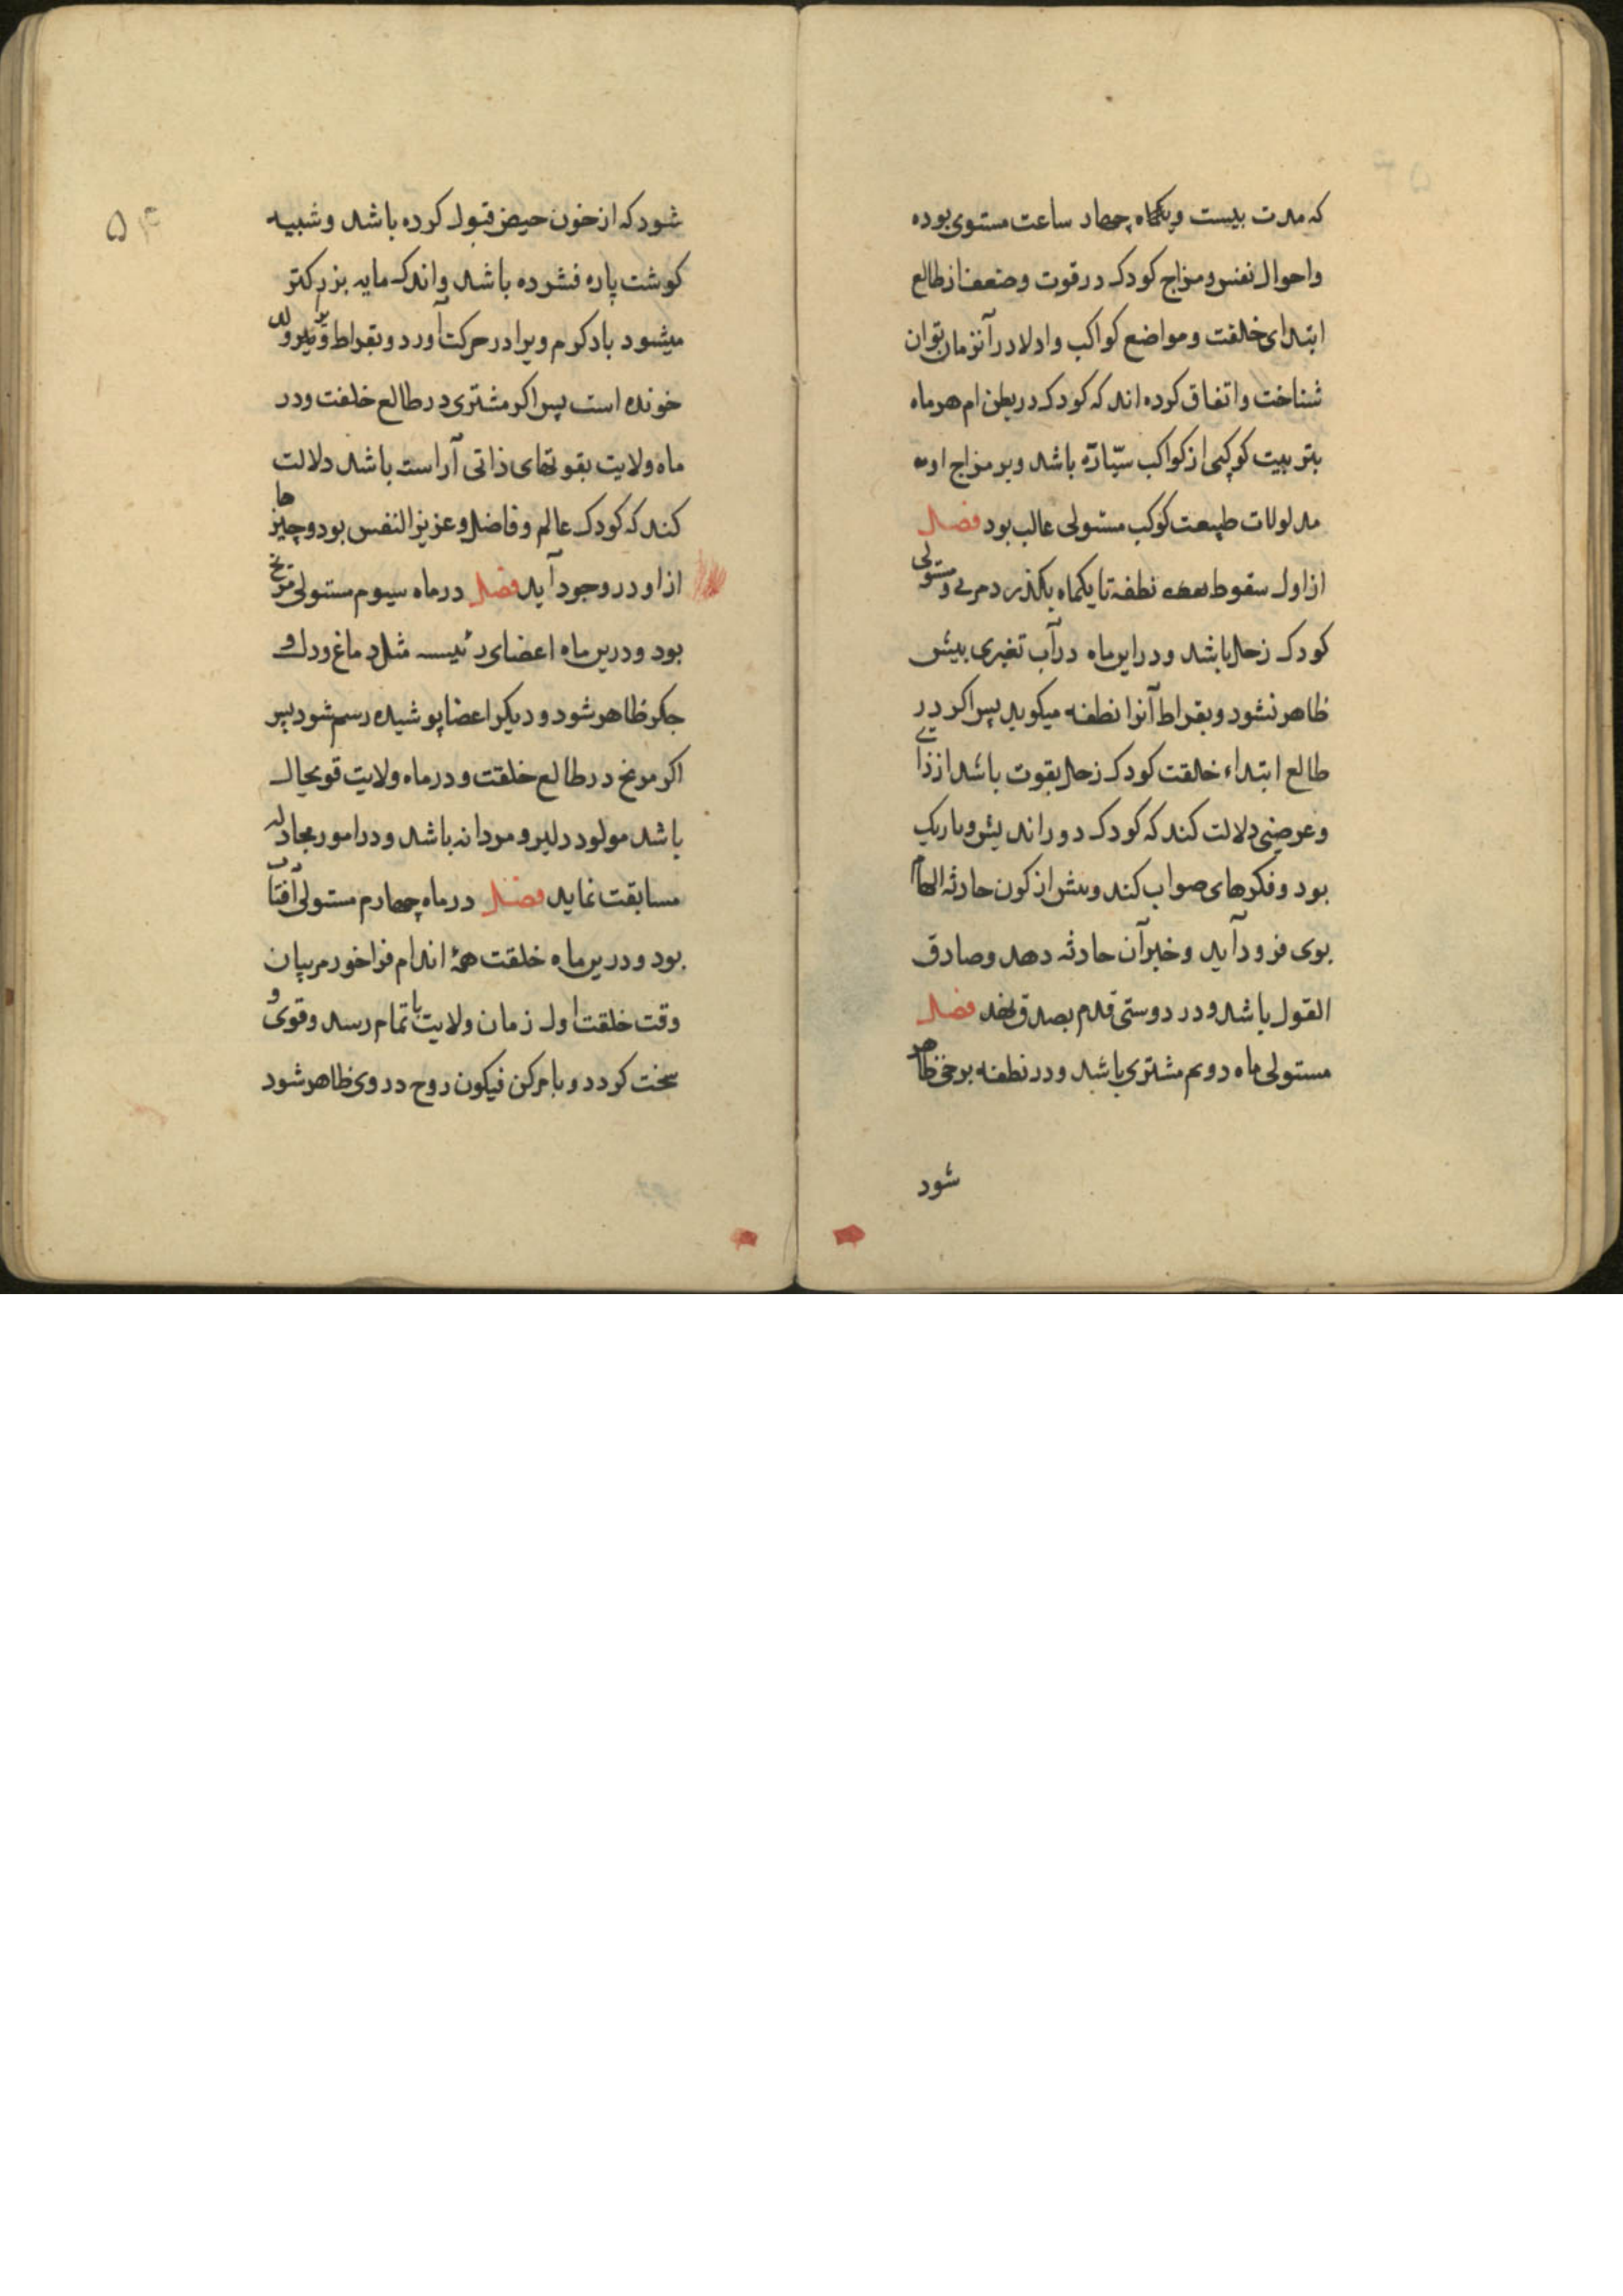 که مدت بیست و یکماه چهار ساعت مستوی بوده
واحوال نفس و مزاج کودک در قوت و ضعف از طالع
ابتدای خلقت و مواضع کواکب و ادلا در آنزمان توان
شناخت و اتفاق کرده اند که کودک در بطن ام هر ماه
بتربیت کوکبی از کواکب سیّاره باشد و بر مزاج او
مدلولات طبیعت کوکب مستولی غالب بود فصل
از اول سقوط نطفه تا یکماه بکذرد مستولی
کودک زحل باشد و در این ماه در آب تغیری بیش
ظاهر نشود و بقراط آنرا نطفه میکوید پس اکر در
طالع ابتداء خلقت کودک زحل بقوت باشد از ذاتی
و عرضی دلالت کند که کودک دور اندیش و باریک
بود و فکرهای صواب کند و پیش از کون حادثه الهام
بوی فرود آید و خبر آن حادثه دهد و صادق
القول باشد و در دوستی قدم بصدق نهد فصل
مستولی ماه دوم مشتری باشد و در نطفه برخی ظاهر
شود
۵۴
شود که از خون حیض قبول کرده باشد و شبیه
کوشت پاره فشرده باشد و اندک مایه بزرکتر
میشود باد کرم ویرا در حرکت آورد و بقراط
خونده است پس اکر مشتری در طالع خلقت و در
ماه ولایت بقوتهای ذاتی آراست باشد دلالت
کند که کودک عالم و فاضل و عزیز النفس بود و چیزها
از او در وجود آید فصل در ماه سیوم مستولی مریخ
بود و درین ماه اعضای رئیسه مثل دماغ و دل و
جکر ظاهر شود و دیکر اعضا پوشیده رسم شود پس
اکر مریخ در طالع خلقت و در ماه ولایت قویحال
باشد مولود دلیر و مردانه باشد و در امور مجادله
مسابقت نماید فصل در ماه چهارم مستولی آفتاب
بود و درین ماه خلقت همهٔ اندام فراخور مربیان
وقت خلقت اول زمان ولایت با تمام رسد و قوی و
سخت کردد و بامر کن فیکون روح در وی ظاهر شود